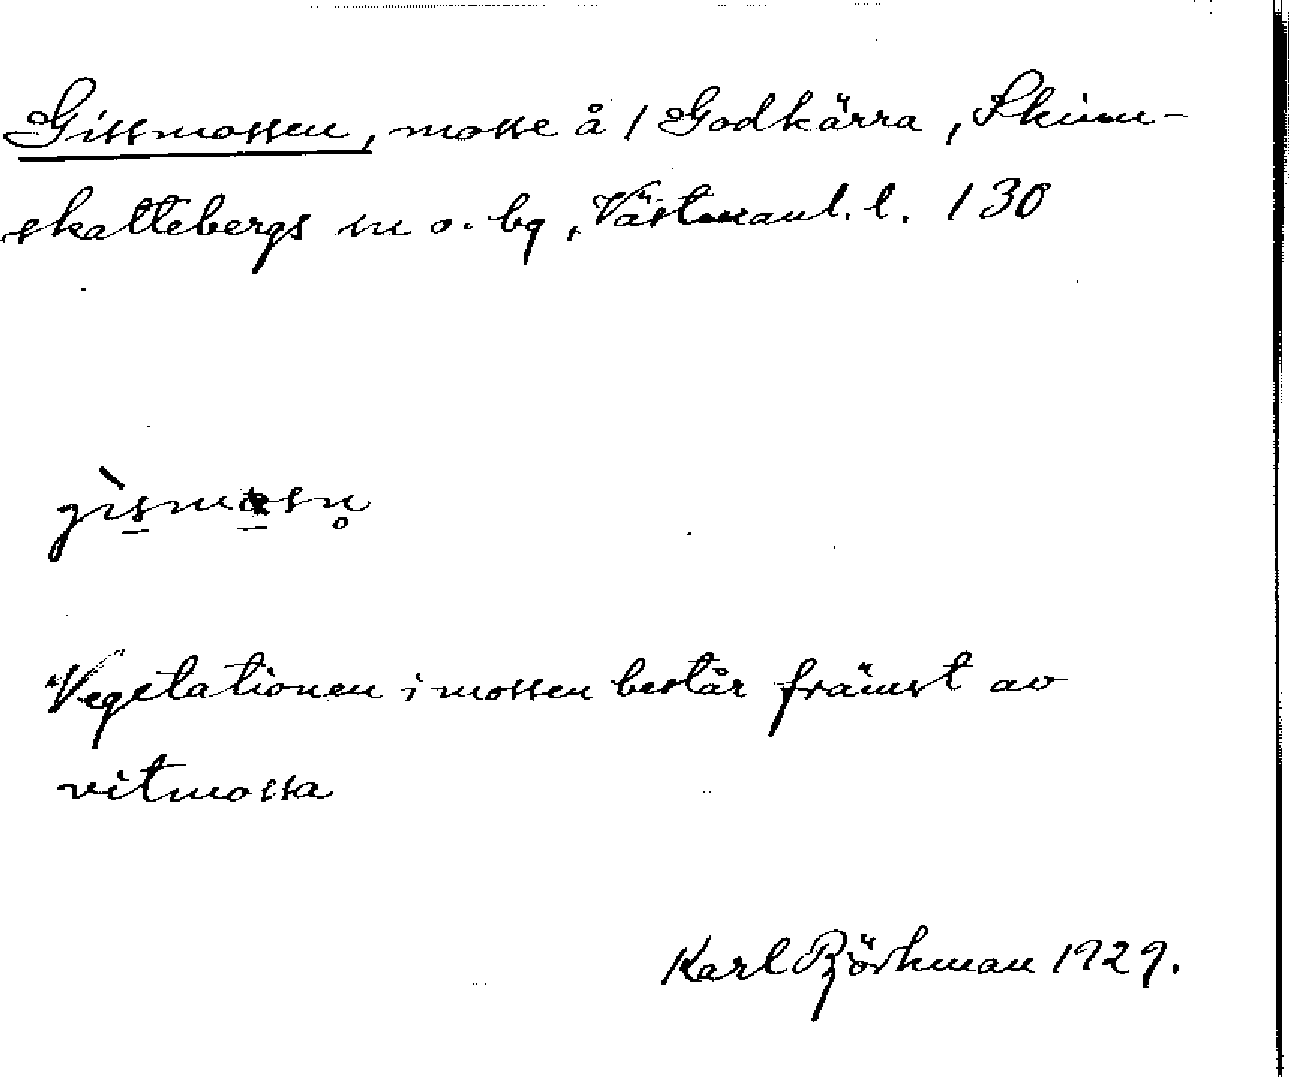 Gissmossen, mosse å 1 Godkärra, Skinn-
skattebergs sn o. bg, Västmanl. l. 130
gismosn̥
Vegetationen i mossen består främst av
vitmossa
Karl Björkman 1929.